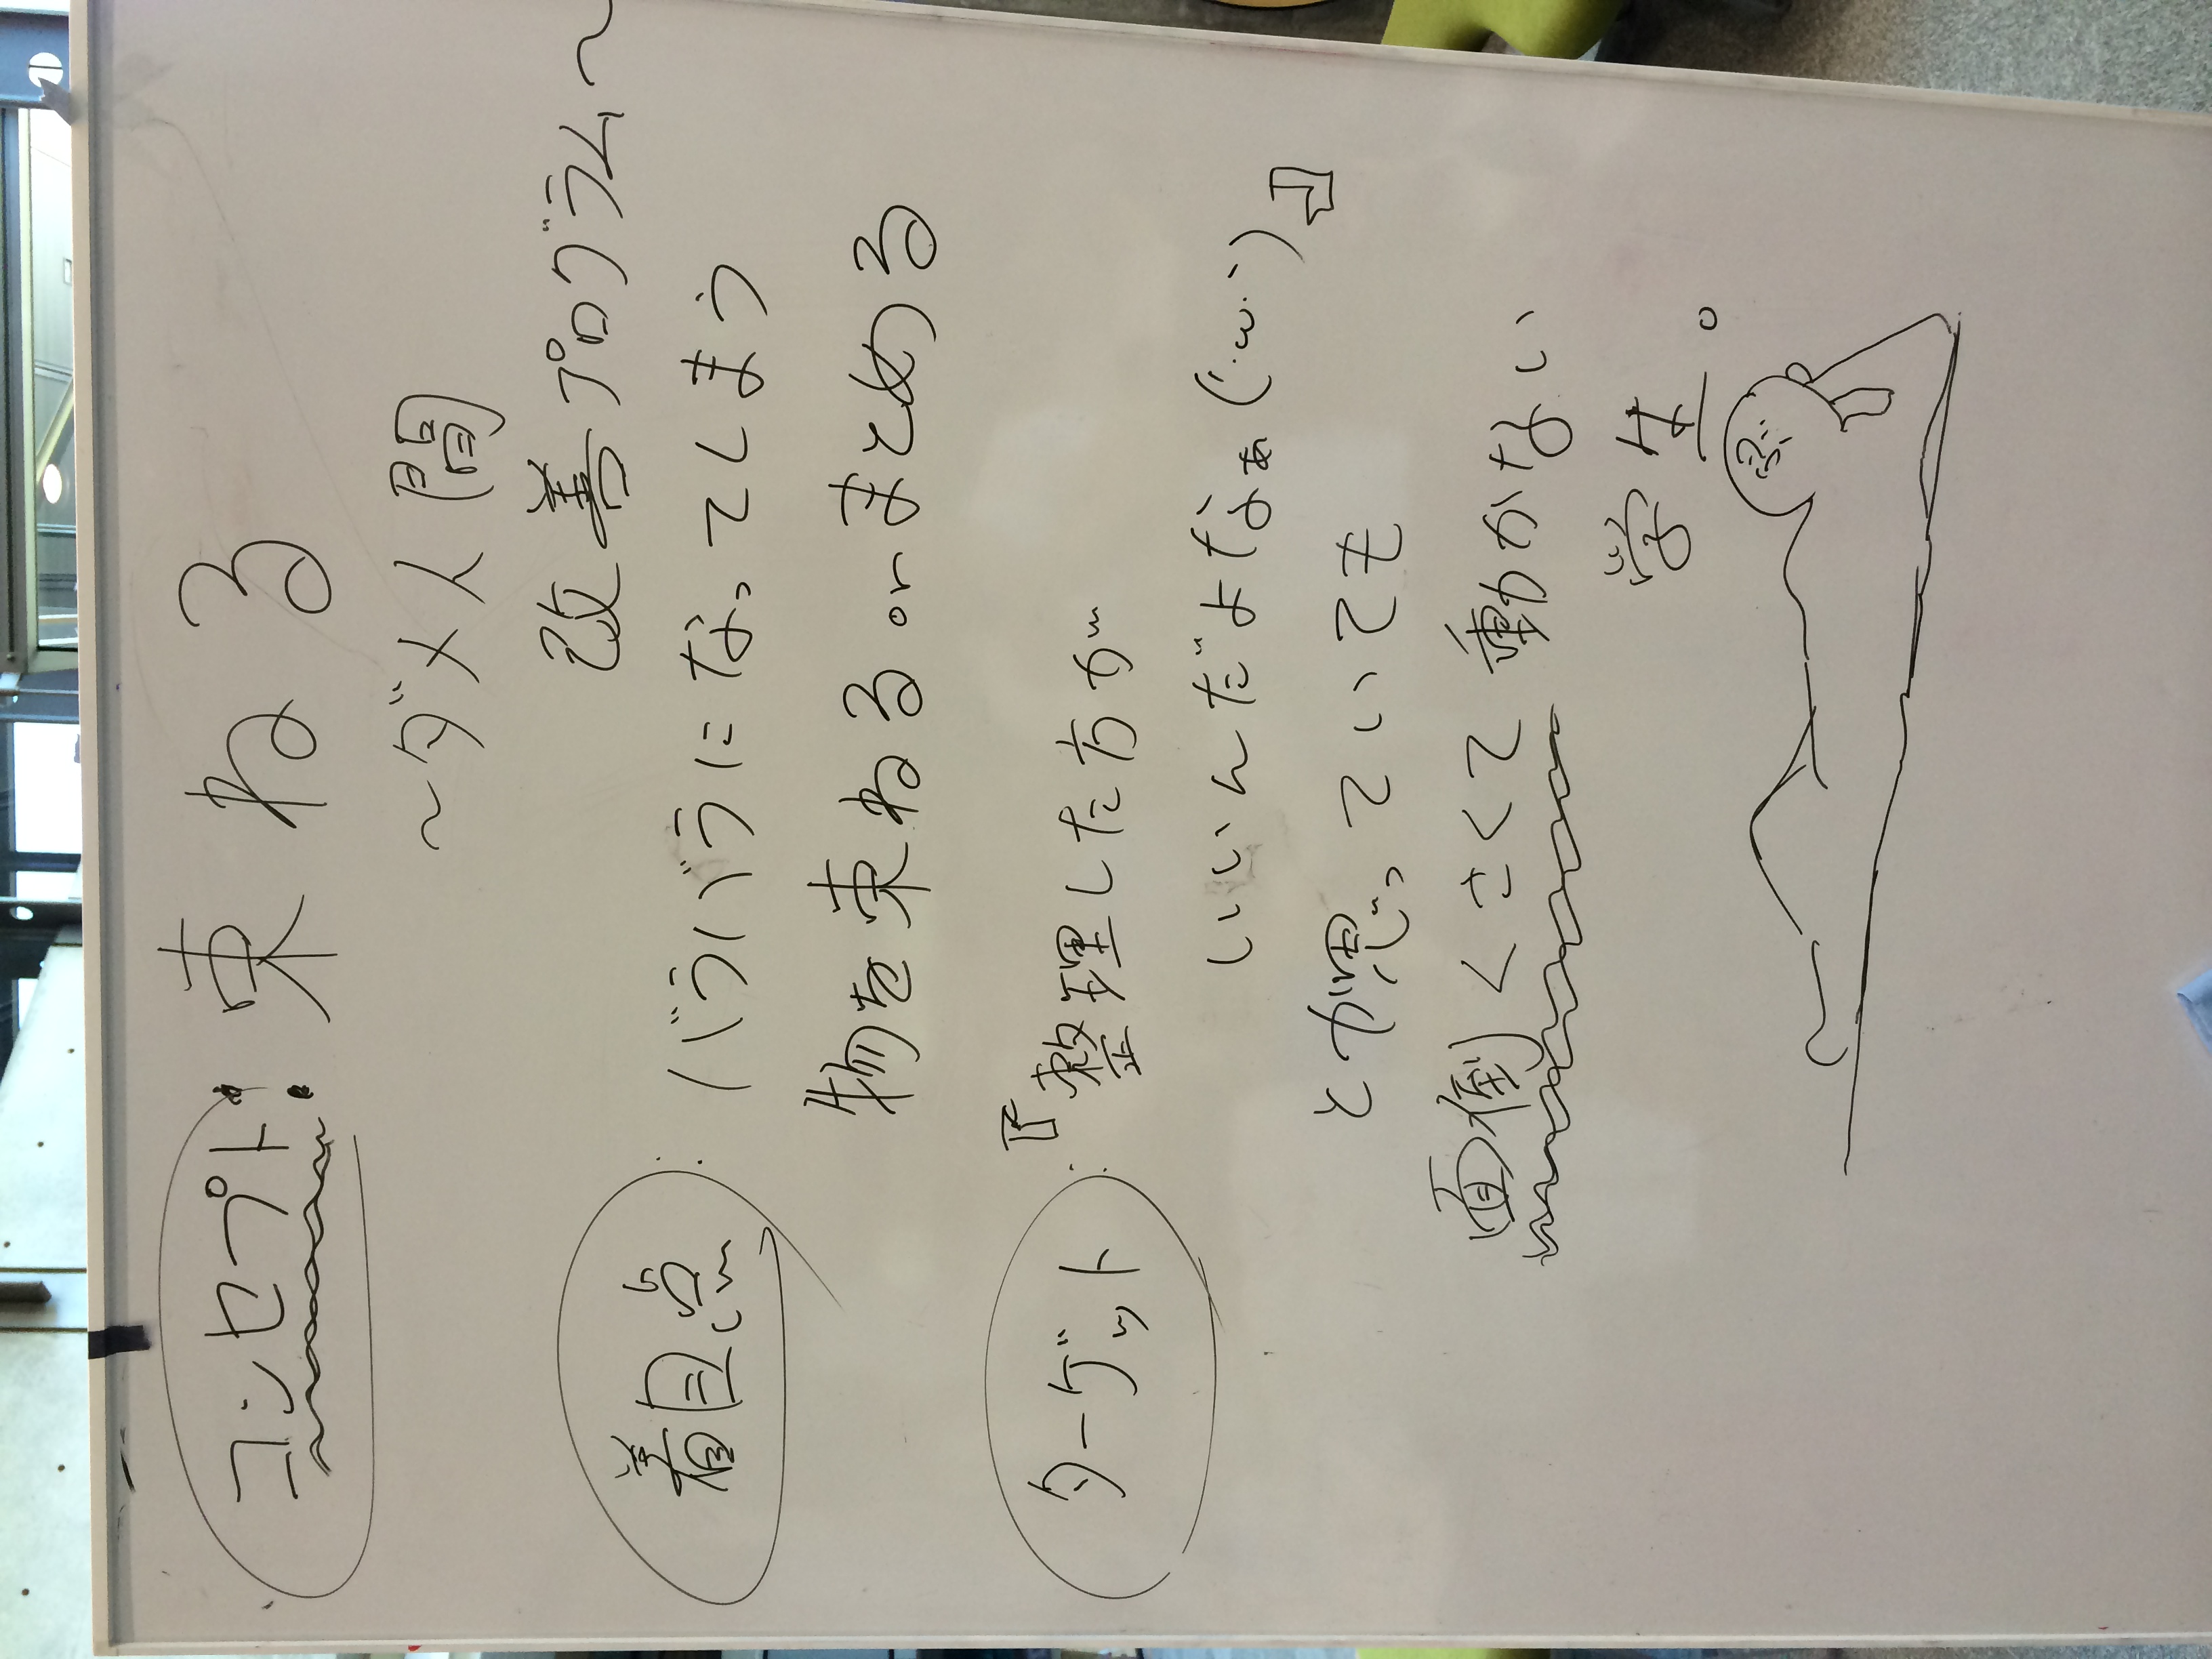 コンセプト:束ねる
～ダメ人間
改善プログラム～
着目点:バラバラになってしまう
物を束ねるorまとめる
ターゲット:『整理した方が
いいんだよなぁ(´･ω･`)』
とか思っていても
面倒くさくて動かない
学生。